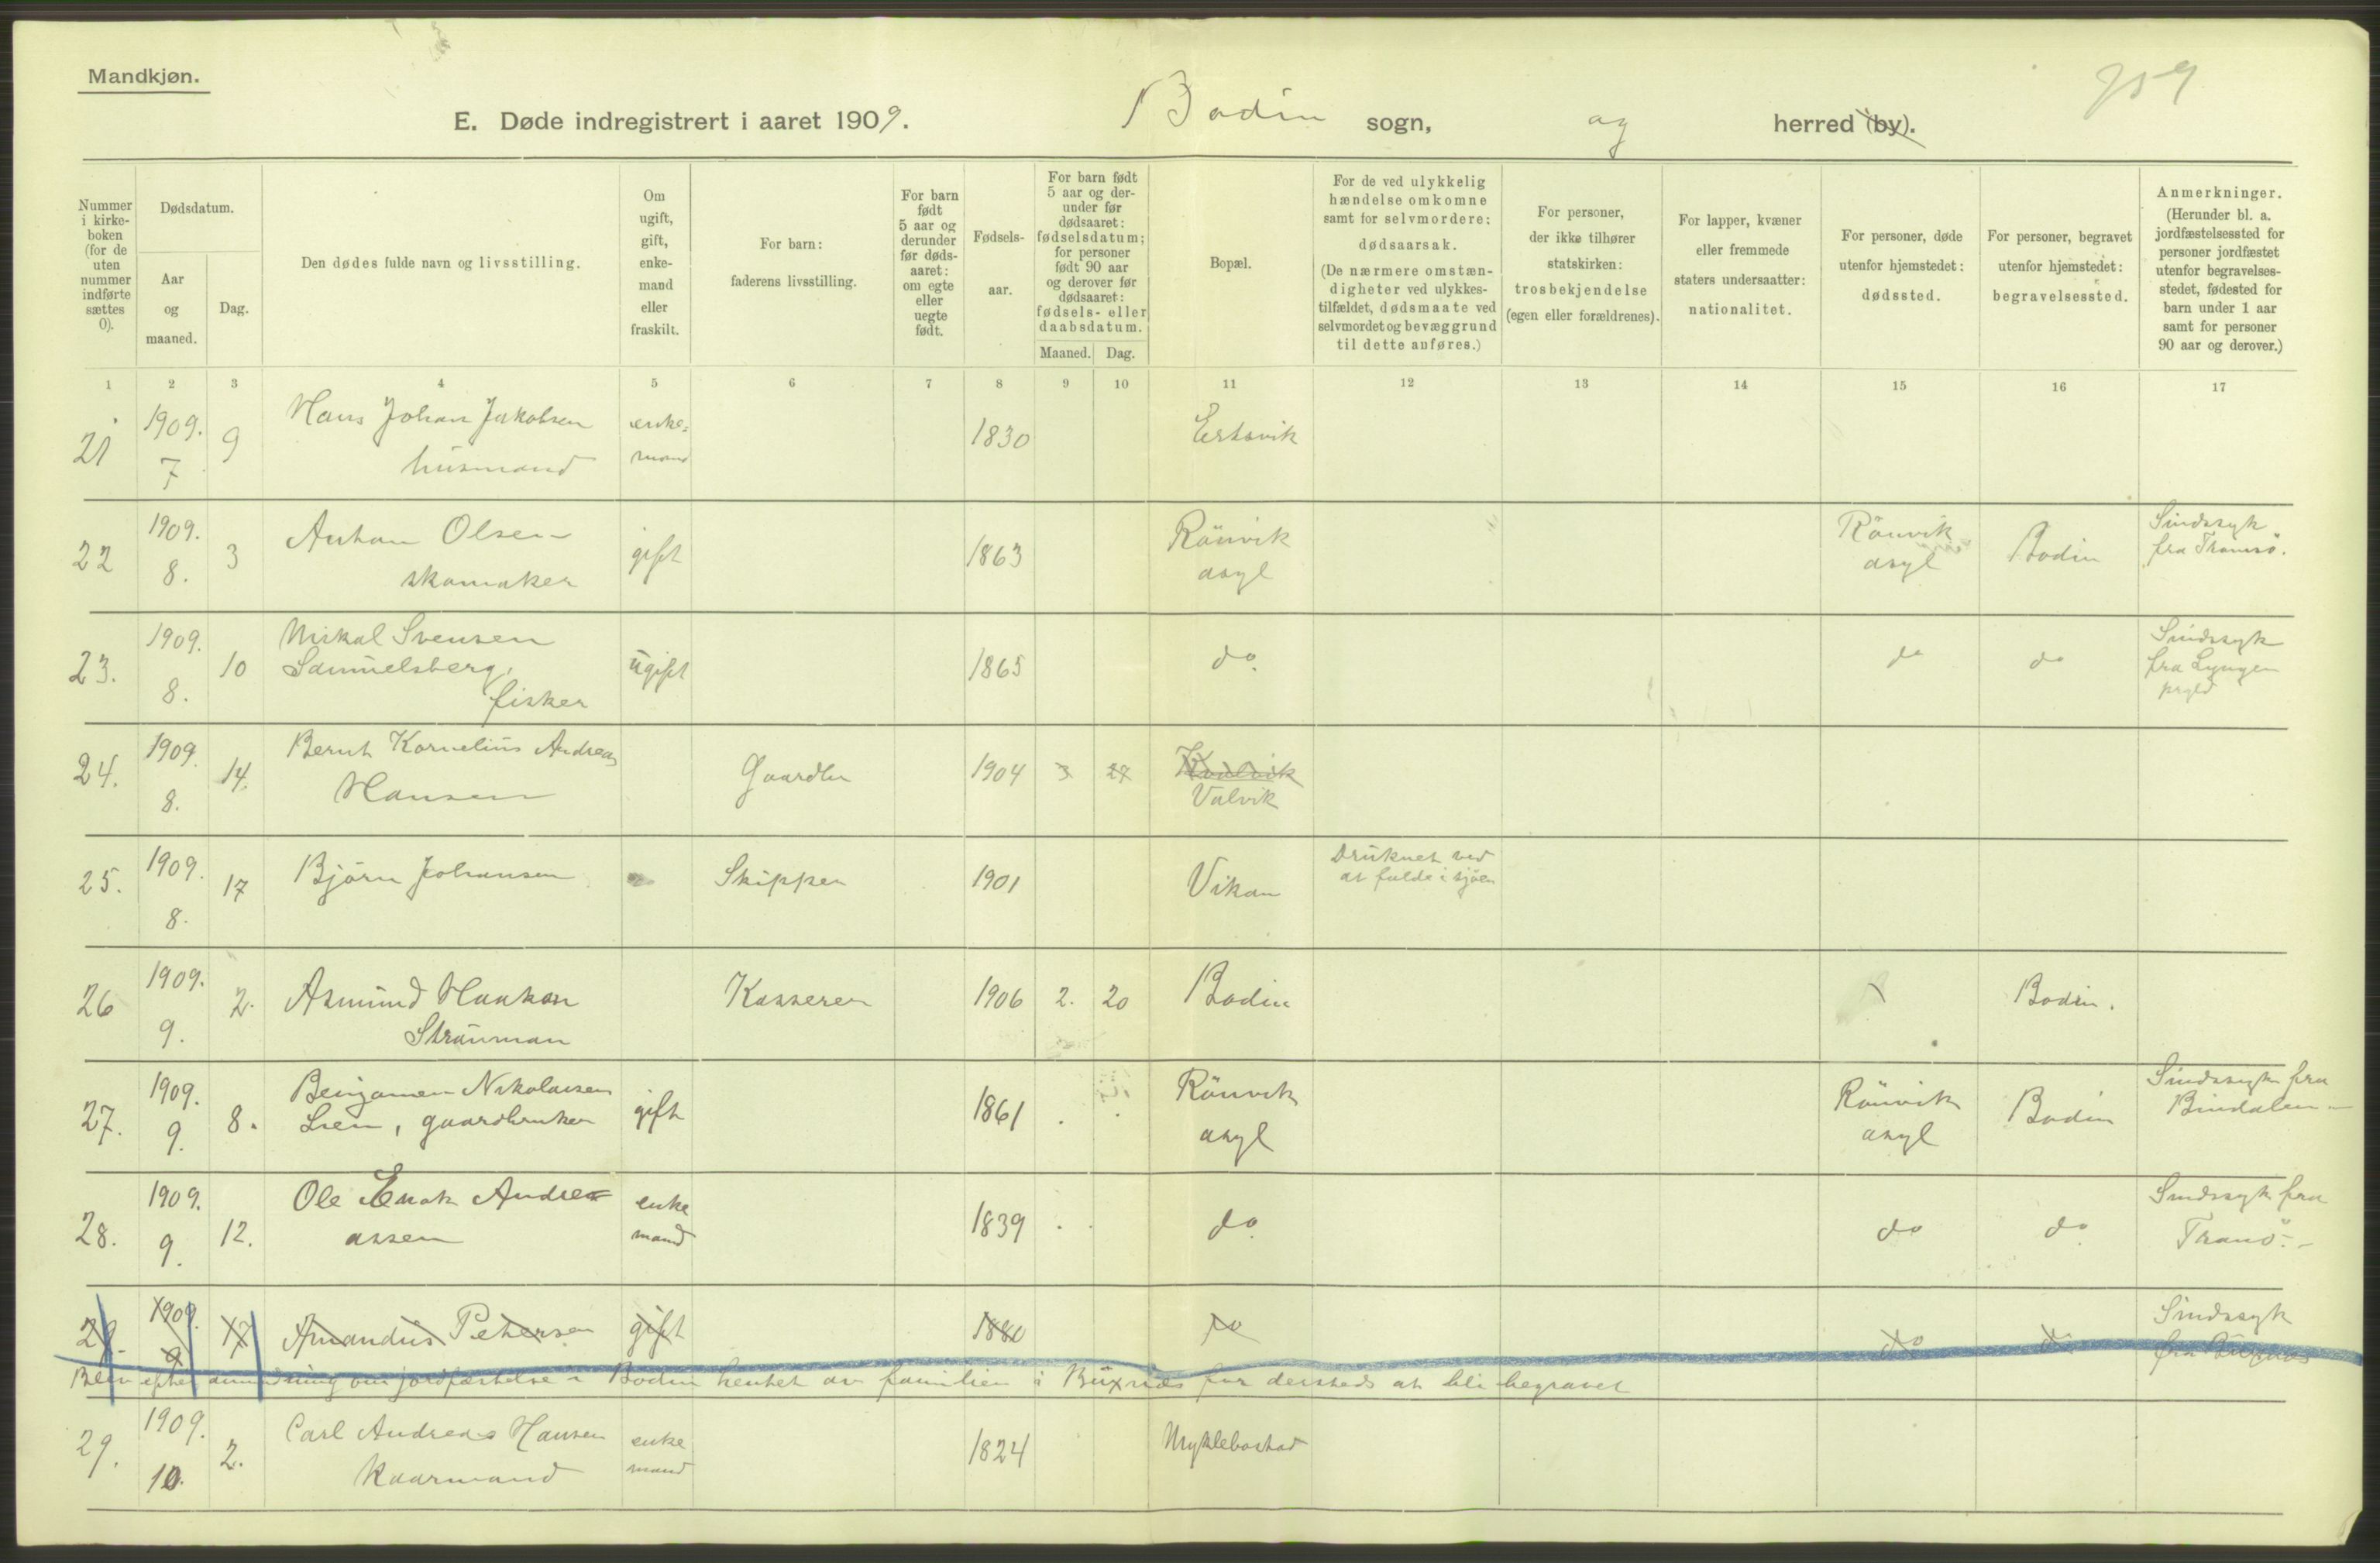 Mandkjøn.
E. Døde indregistrert i aaret 1909. Bodin sogn, og herred (by).
Nummer i kirkeboken (for de uten nummer indførte sættes 0).
Dødsdatum.
Aar og maaned.
Dag.
Den dødes fulde navn og livsstilling.
Om ugift, gift, enkemand eller fraskilt.
For barn: faderens livsstilling.
For barn født 5 aar og derunder før dødsaaret: om egte eller uegte født.
Fødselsaar.
For barn født 5 aar og derunder før dødsaaret: fødselsdatum; for personer født 90 aar og derover før dødsaaret: fødsels- eller daabsdatum.
Maaned. Dag.
Bopæl.
For de ved ulykkelig hændelse omkomne samt for selvmordere: dødsaarsak. (De nærmere omstændigheter ved ulykkestilfældet, dødsmaate ved selvmordet og bevæggrund til dette anføres.)
For personer, der ikke tilhører statskirken: trosbekjendelse (egen eller forældrenes).
For lapper, kvæner eller fremmede staters undersaatter: nationalitet.
For personer, døde utenfor hjemstedet: dødssted.
For personer, begravet utenfor hjemstedet: begravelsessted.
Anmerkninger. (Herunder bl. a. jordfæstelsessted for personer jordfæstet utenfor begravelsesstedet, fødested for barn under 1 aar samt for personer 90 aar og derover.)
1 2 3 4 5 6 7 8 9 10 11 12 13 14 15 16 17
21 1909. 7 9 Hans Johan Jakobsen husmand enkemand 1830 Ertsvik
22 1909. 8. 3 Anton Olsen skomaker gift 1863 Rönvik asyl Rönvik asyl Bodin Sindssyk fra Tromsö.
23. 1909. 8. 10 Mikal Svensen Samuelsberg, fisker ugift 1865 do. do do Sindssyk fra Lyngen prgld
24. 1909. 8. 14. Bernt Kornelius Andreas Hansen Gaardbr 1904 3 27 Kvalvik Valvik
25. 1909. 8. 17 Björn Johansen Skipper 1901 Vikan Druknet ved at falde i sjöen
26 1909. 9. 2. Asmund Haakon Strauman Kasserer 1906 2. 20 Bodin Bodin.
27. 1909. 9. 8. Benjamen Nikolaisen Lien, gaardbruker gift 1861 Rönvik asyl Rönvik asyl Bodin Sindssyk fra Bindalen
28. 1909. 9. 12. Ole Enok Andreassen enkemand 1839 do. do do Sindssyk fra Tranö.
29. 1909. 9 17 Amandus Petersen gift 1880 do do do Sindssyk fra Buxnæs
Blev efter anmodning om jordfæstelse i Bodin hentet av familien i Buxnæs for dersteds at bli begravet
29. 1909. 10. 2. Carl Andreas Hansen kaarmand enkemand 1824 Myklebostad